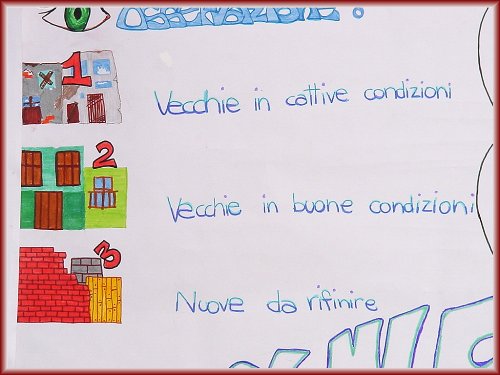 OSSERVAZIONE:
1
Vecchie in cattive condizioni
2
Vecchie in buone condizioni
3
Nuove da rifinire